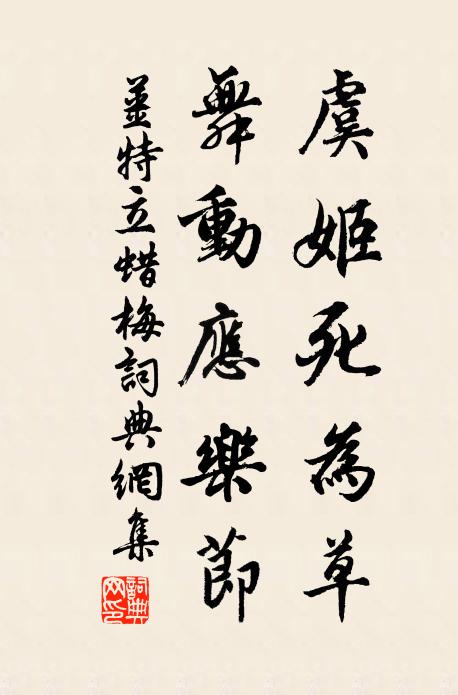 虞姬死為草
舞動應樂節
姜特立蜡梅詞典網集
詞典網印